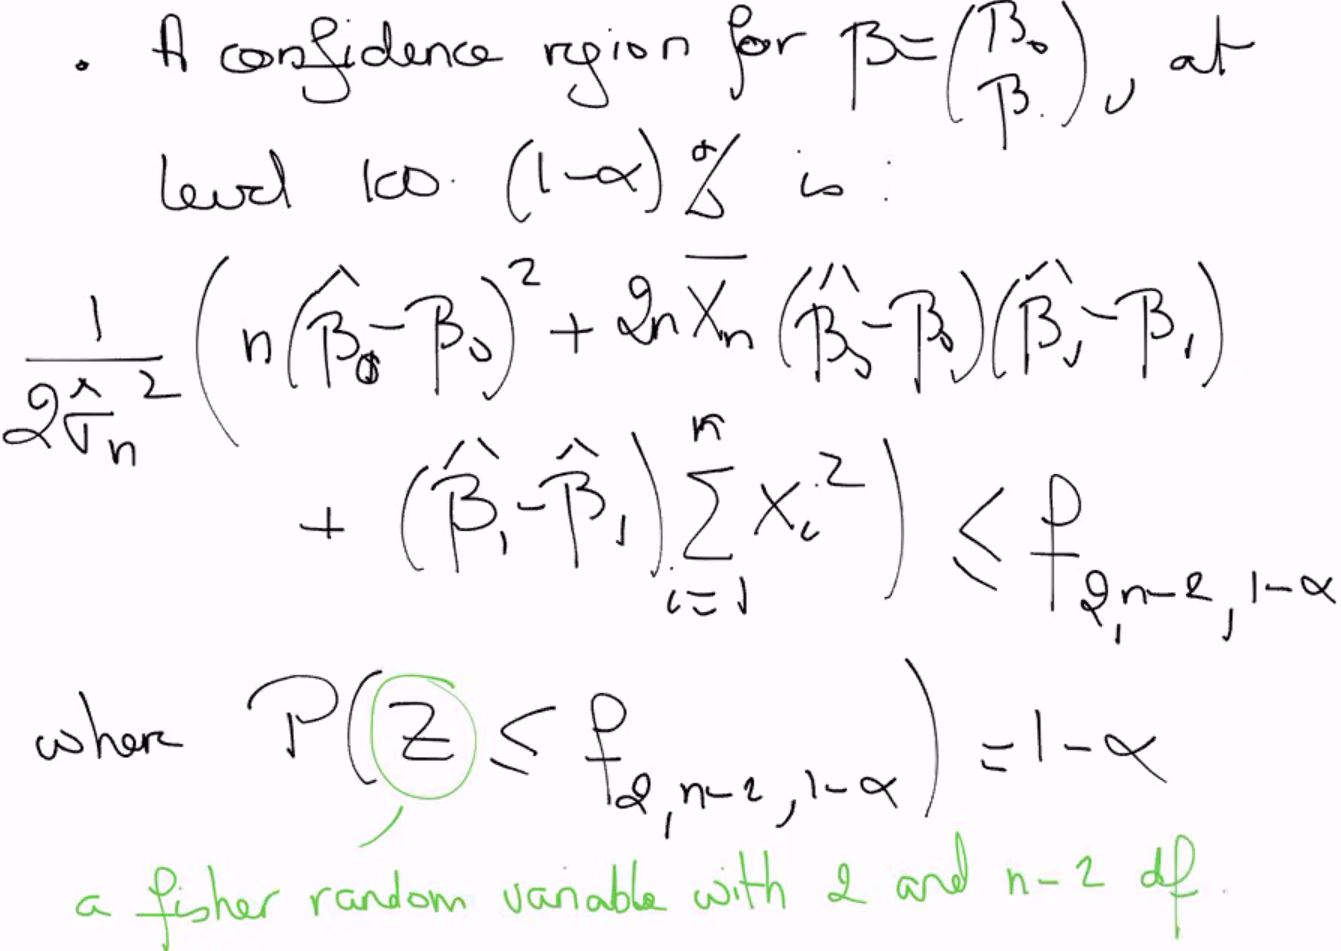 • A confidence region for β=(β₀ β₁), at
level 100 (1-α)% is:
1/(2σ̂ₙ²) ( n(β̂₀-β₀)² + 2n X̄ₙ (β̂₀-β₀)(β̂₁-β₁)
+ (β̂₁-β̂₁) Σᵢ₌₁ⁿ xᵢ² ) ≤ f₂,ₙ₋₂,₁₋α
where P(Z ≤ f₂,ₙ₋₂,₁₋α) = 1-α
a fisher random variable with 2 and n-2 df.